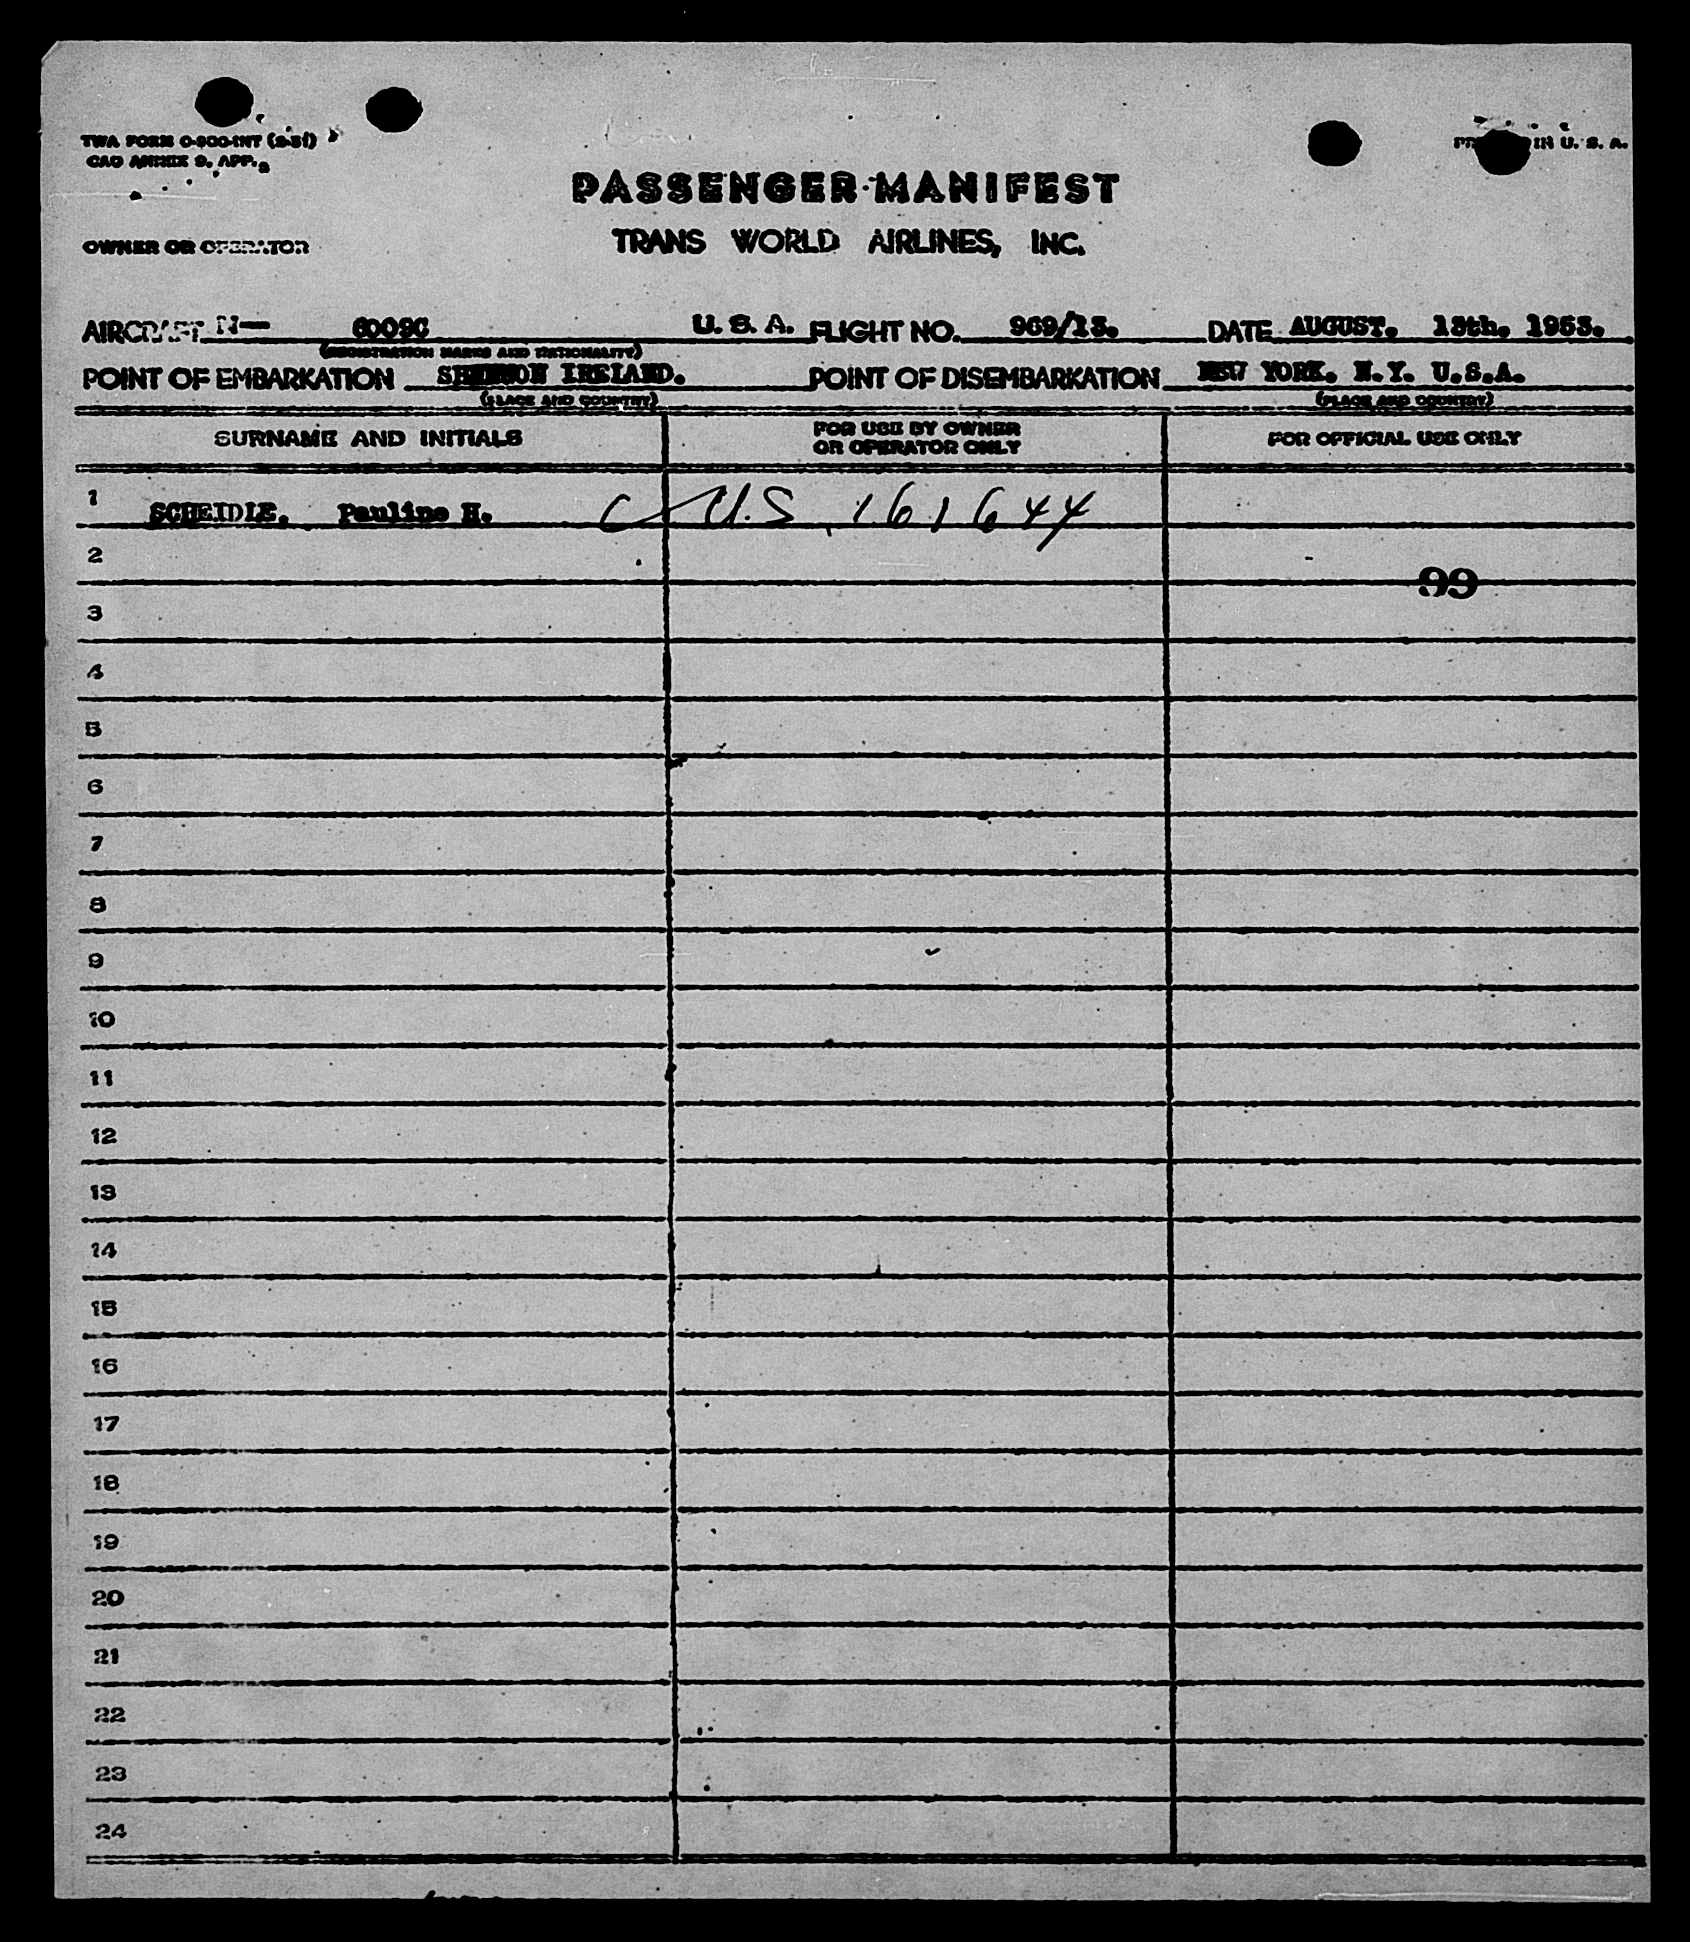 TWA FORM O-900-INT (2-51)
CAO ANNEX 9, APP. 2
IN U. S. A.
PASSENGER MANIFEST
OWNER OR OPERATOR
TRANS WORLD AIRLINES, INC.
AIRCRAFT N— 6009C U. S. A. FLIGHT NO. 969/13. DATE AUGUST. 13th. 1953.
(REGISTRATION MARKS AND NATIONALITY)
POINT OF EMBARKATION SHANNON IRELAND. POINT OF DISEMBARKATION NEW YORK. N.Y. U.S.A.
(PLACE AND COUNTRY) (PLACE AND COUNTRY)
SURNAME AND INITIALS FOR USE BY OWNER OR OPERATOR ONLY FOR OFFICIAL USE ONLY
1 SCHEIDLE. Pauline H. U.S. 161644
2
99
3
4
5
6
7
8
9
10
11
12
13
14
15
16
17
18
19
20
21
22
23
24